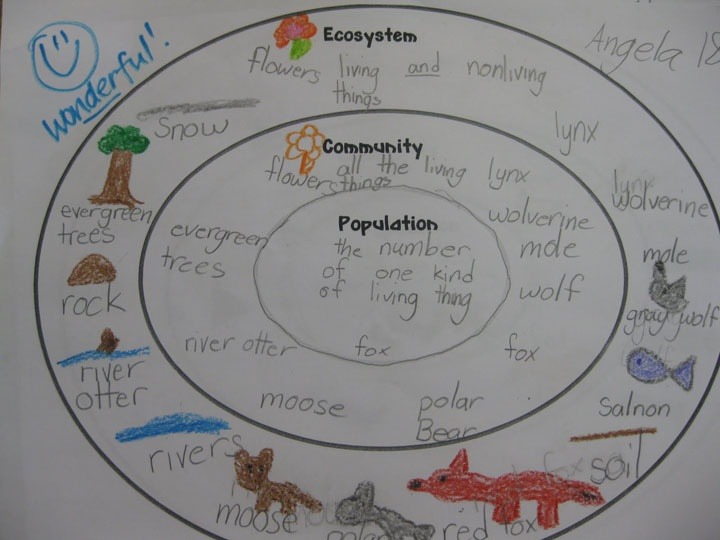 wonderful!
Angela 18
Ecosystem
flowers living and nonliving
things
Snow
lynx
evergreen
trees
rock
river
otter
rivers
moose
polar
red fox
soil
Salnon
gray wolf
mole
wolverine
Community
flowers all the living
things
lynx
wolverine
mole
wolf
fox
polar
Bear
moose
river otter
evergreen
trees
Population
the number
of one kind
of living thing
fox